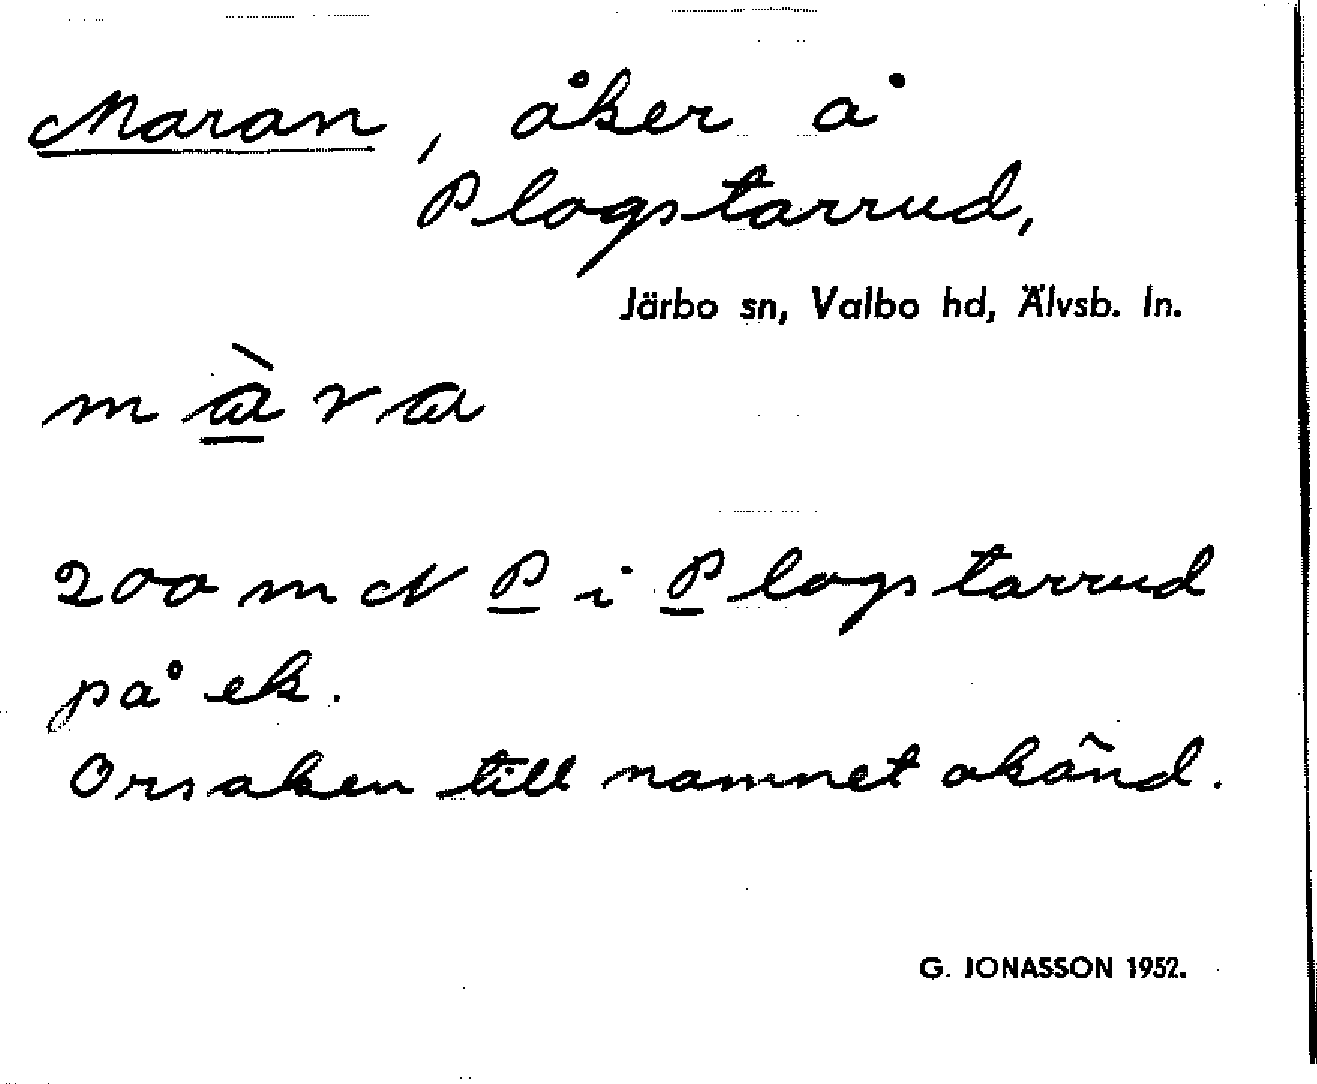 Maran, åker å
Plogstarrud,
Järbo sn, Valbo hd, Älvsb. ln.
màra
200 m N P i Plogstarrud
på ek.
Orsaken till namnet okänd.
G. JONASSON 1952.